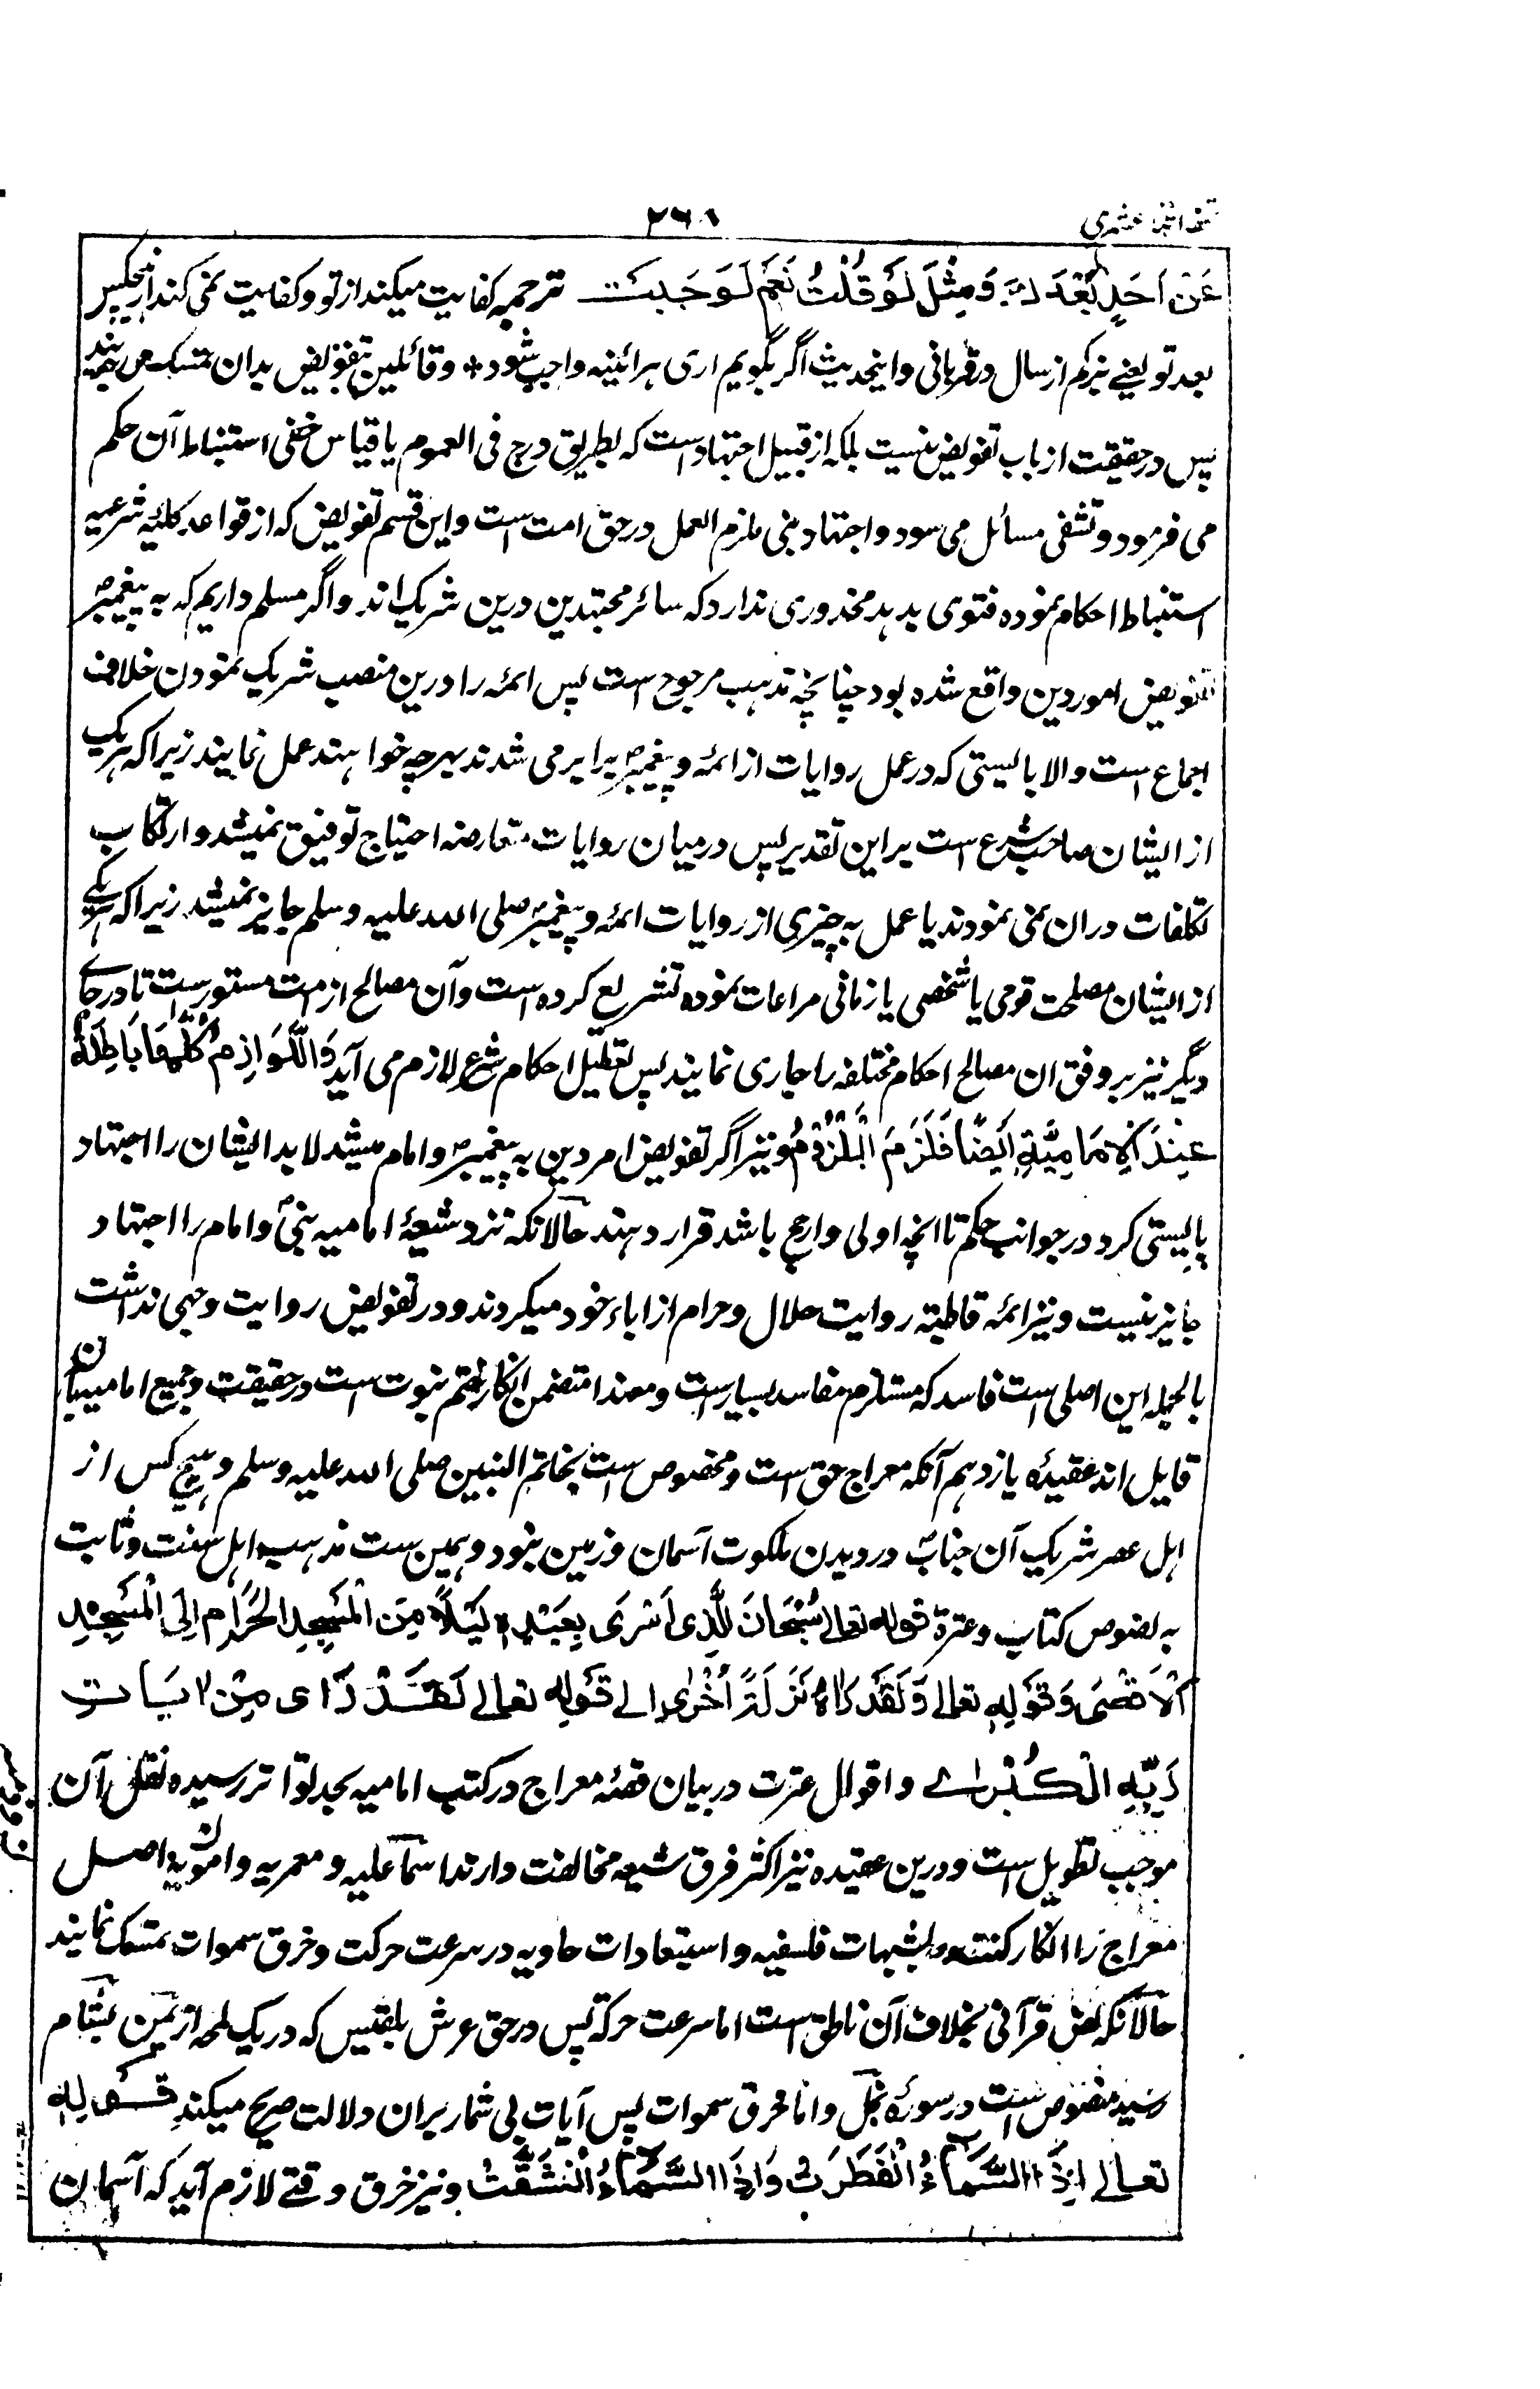 تحفه اثنا عشری
۲۶۸
عَنْ اَحَدٍ بَعْدَكَ وَمِثْلَ لَوْ قُلْتُ نَعَمْ لَوَجَبَتْ ترجمه کفایت میکند از تو و کفایت نمی کند از هیچکس
بعد تو یعنی بزکم از سال در قربانی و اینحدیث اگر بگویم اری هر ائینه واجب شود * و قائلین بتفویض بدان تمسک می جویند
پس در حقیقت از باب تفویض نیست بلکه از قبیل اجتهاد است که بطریق درج فی العموم یا قیاس خفی استنباط آن حکم
می فرمود و تشفی مسائل می سود و اجتهاد نبی ملزم العمل در حق امت است و این قسم تفویض که از قواعد کلیه شرعیه
استنباط احکام نموده فتوی بدهد محذوری ندارد که سائر مجتهدین درین شریک اند و اگر مسلم داریم که به پیغمبر ص
تفویض امور دین واقع شده بود چنانچه مذهب مرجوح است پس ائمه را درین منصب شریک نمودن خلاف
اجماع است والا بایستی که در عمل روایات از ائمه و پیغمبر ص برابر می شدند بهر چه خواهند عمل نمایند زیراکه هر یک
از ایشان صاحب شرع است بر این تقدیر پس در میان روایات متعارضه احتیاج توفیق نمیشد و ارتکاب
تکلفات دران نمی نمودند یا عمل به چیزی از روایات ائمه و پیغمبر صلی الله علیه وسلم جایز نمیشد زیراکه هر یکے
از ایشان مصلحت قومی یا شخصی یا زمانی مراعات نموده تشریع کرده است و آن مصالح از امت مستور است تا در جاے
دیگر نیز بر وفق ان مصالح احکام مختلفه را جاری نمایند پس تعطیل احکام شرع لازم می آید وَاللَّوَازِمُ كُلُّهَا بَاطِلَةٌ
عِنْدَ الْاِمَامِيَّةِ اَيْضًا فَلَزِمَ الْمَلْزُوْمُ و نیز اگر تفویض امر دین به پیغمبر ص و امام میشد لابد ایشان را اجتهاد
بایستی کرد در جوانب حکم تا انچه اولی و ارجح باشد قرار دهند حالانکه نزد شیعۀ امامیه نبی و امام را اجتهاد
جایز نیست و نیز ائمه قاطبة روایت حلال و حرام از اباء خود میکردند و در تفویض روایت وجهی نداشت
بالجمله این اصلی است فاسد که مستلزم مفاسد بسیار است و معهذا متضمن انکار ختم نبوت است در حقیقت و جمیع امامیه بآن
قایل اند عقیده یازدهم آنکه معراج حق است و مخصوص است بخاتم النبیین صلی الله علیه وسلم و هیچ کس از
اهل عصر شریک آن جناب در دیدن ملکوت آسمان و زمین نبود و همین ست مذهب اهل سنت و ثابت
به نصوص کتاب و عترة قوله تعالی سُبْحَانَ الَّذِى اَسْرَى بِعَبْدِهِ لَيْلًا مِنَ الْمَسْجِدِ الْحَرَامِ اِلَى الْمَسْجِدِ
الْاَقْصَى وَقَوْلِهِ تعالی وَلَقَدْ رَاٰهُ نَزْلَةً اُخْرٰى الے قَوْلِهِ تعالے لَقَدْ رَاٰى مِنْ اٰيَاتِ
رَبِّهِ الْكُبْرٰى و اقوال عترت در بیان قصۀ معراج در کتب امامیه بحد تواتر رسیده نقل آن
موجب تطویل است و درین عقیده نیز اکثر فرق شیعه مخالفت دارند اسماعیلیه و معمریه و امویه اصل
معراج را انکار کنند و بشبهات فلسفیه و استبعادات عادیه در سرعت حرکت و خرق سموات تمسک نمایند
حالانکه نص قرآنی بخلاف آن ناطق است اما سرعت حرکة پس در حق عرش بلقیس که در یک لمحه از یمن بشام
رسید منصوص است در سورۀ نمل و اما خرق سموات پس آیات بی شمار بران دلالت صریح میکند قَوْلِهِ
تعالے اِذَا السَّمَاءُ انْفَطَرَتْ وَاِذَا السَّمَاءُ انْشَقَّتْ و نیز خرق وقتے لازم آید که آسمان